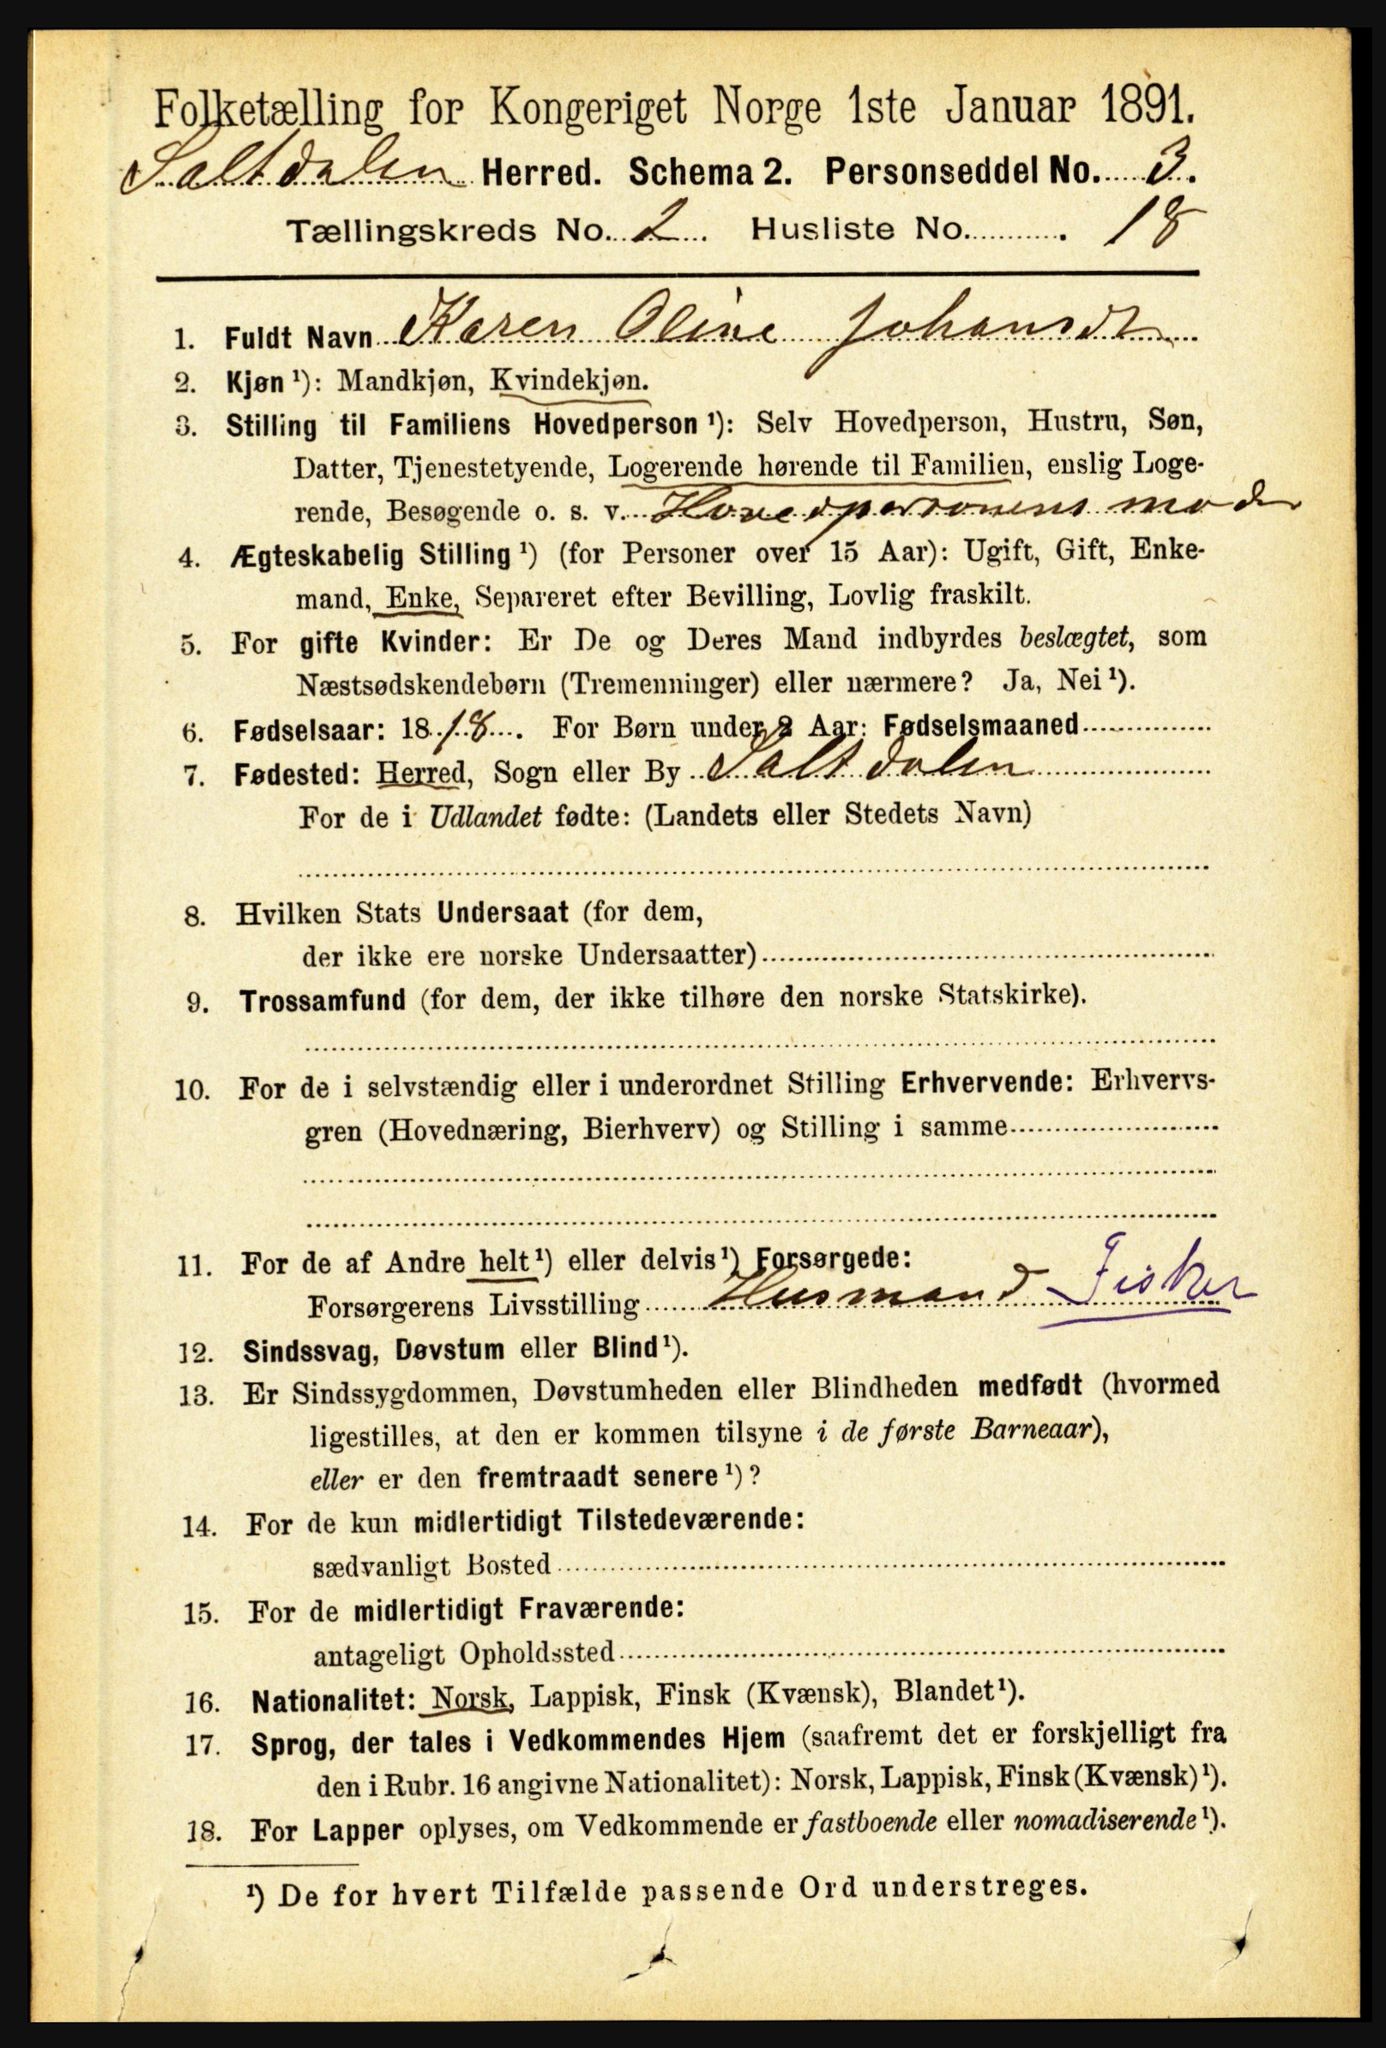 Folketælling for Kongeriget Norge 1ste Januar 1891.
Saltdalen Herred. Schema 2. Personseddel No. 3.
Tællingskreds No. 2. Husliste No. 18
1. Fuldt Navn Karen Oline Johansdt
2. Kjøn ¹): Mandkjøn, Kvindekjøn.
3. Stilling til Familiens Hovedperson ¹): Selv Hovedperson, Hustru, Søn,
Datter, Tjenestetyende, Logerende hørende til Familien, enslig Loge-
rende, Besøgende o. s. v. Hovedpersonens moder
4. Ægteskabelig Stilling ¹) (for Personer over 15 Aar): Ugift, Gift, Enke-
mand, Enke, Separeret efter Bevilling, Lovlig fraskilt.
5. For gifte Kvinder: Er De og Deres Mand indbyrdes beslægtet, som
Næstsødskendebørn (Tremenninger) eller nærmere? Ja, Nei ¹).
6. Fødselsaar: 1818. For Børn under 2 Aar: Fødselsmaaned
7. Fødested: Herred, Sogn eller By Saltdalen
For de i Udlandet fødte: (Landets eller Stedets Navn)
8. Hvilken Stats Undersaat (for dem,
der ikke ere norske Undersaatter)
9. Trossamfund (for dem, der ikke tilhøre den norske Statskirke).
10. For de i selvstændig eller i underordnet Stilling Erhvervende: Erhvervs-
gren (Hovednæring, Bierhverv) og Stilling i samme
11. For de af Andre helt ¹) eller delvis ¹) Forsørgede:
Forsørgerens Livsstilling Husmand Fisker
12. Sindssvag, Døvstum eller Blind ¹).
13. Er Sindssygdommen, Døvstumheden eller Blindheden medfødt (hvormed
ligestilles, at den er kommen tilsyne i de første Barneaar),
eller er den fremtraadt senere ¹)?
14. For de kun midlertidigt Tilstedeværende:
sædvanligt Bosted
15. For de midlertidigt Fraværende:
antageligt Opholdssted
16. Nationalitet: Norsk, Lappisk, Finsk (Kvænsk), Blandet ¹).
17. Sprog, der tales i Vedkommendes Hjem (saafremt det er forskjelligt fra
den i Rubr. 16 angivne Nationalitet): Norsk, Lappisk, Finsk (Kvænsk) ¹).
18. For Lapper oplyses, om Vedkommende er fastboende eller nomadiserende ¹).
¹) De for hvert Tilfælde passende Ord understreges.